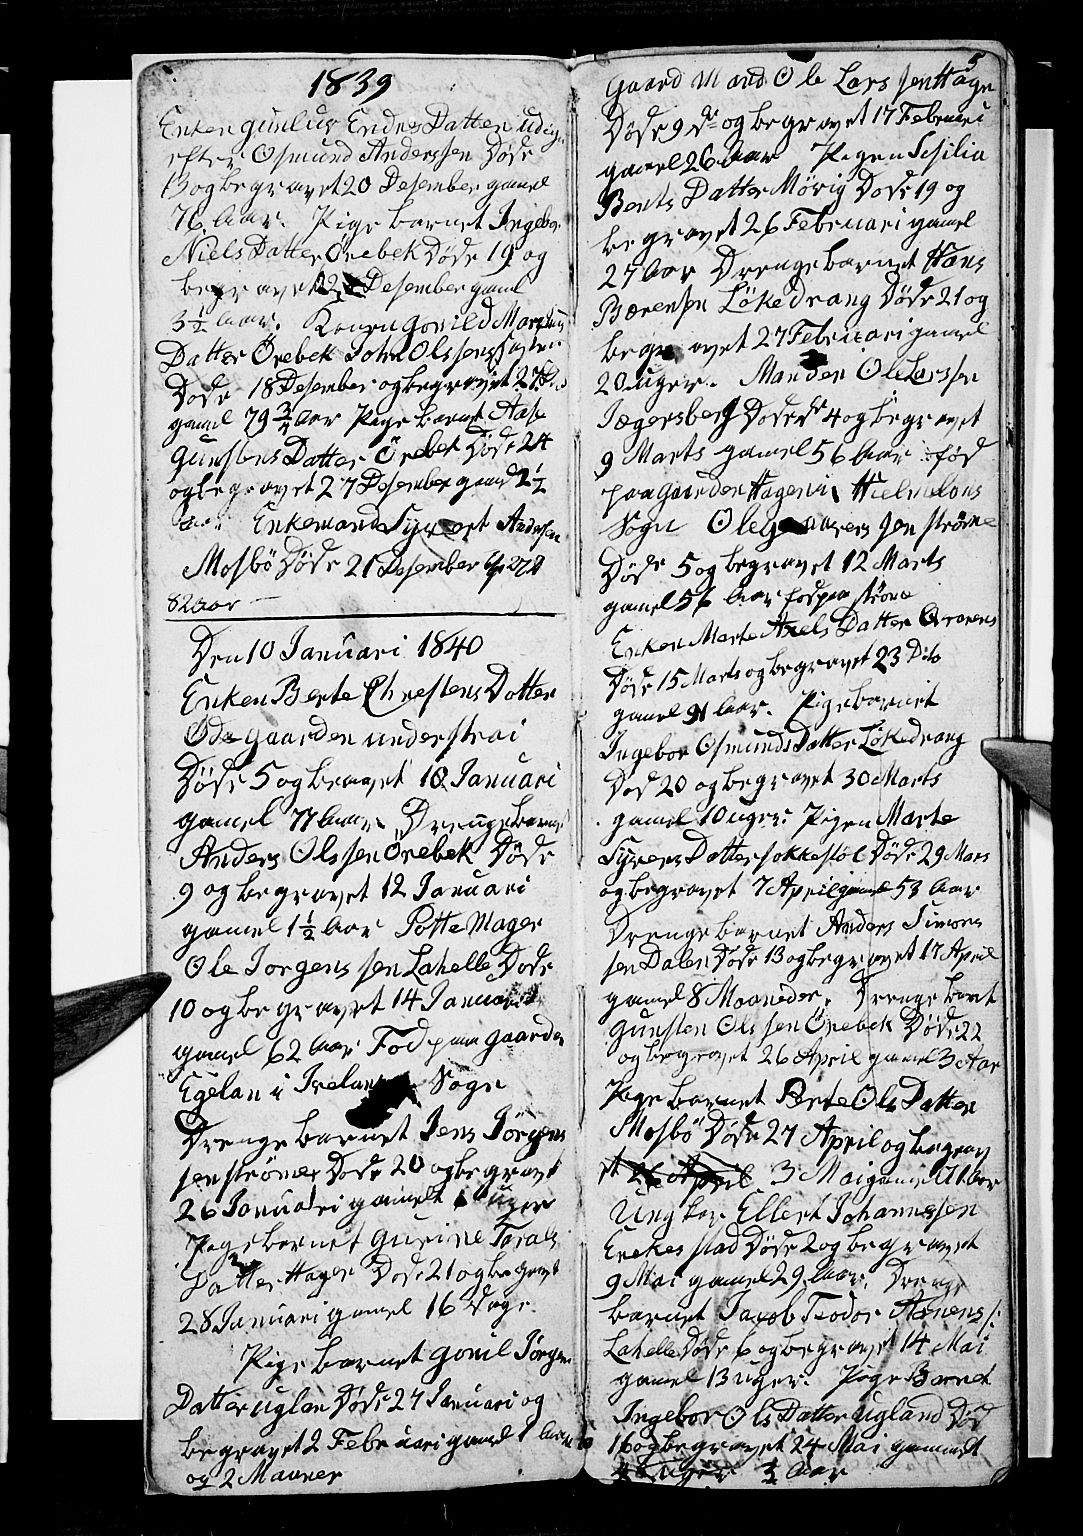 1839
Enken Gunlur Endres Datter udig
efter Osmund Anderssen Døde
13 og begravet 20 Desember gamel
76 Aar. Pige barnet Ingebor
Niels Datter Örebek Døde 19 og
begravet 22 Desember gaml
3½ Aar. Konen Gonild
Datter Örebek John Olssens
Døde 18 Desember og begravet 27
gamel 79¾ Aar Pige barnet Aase
Gunstens Datter Örebek Døde 24
og begravet 27 Desember gaml 2½
Aar Enkemand Syvert Andersen
Mosbö Døde 21 Desember
82 aar
Den 10 Januari 1840
Enken Berte Chrestens Datter
Ødegaarden under strai
Døde 5 og bravet 10 Januari
gamel 77 Aar. Drengebarnet
Anders Olssen Örebek Døde
9 og begravet 12 Januari
gamel 1½ Aar Potte Mager
Ole Jorgenssen Lahelle Døde
10 og begravet 14 Januari
gamel 62 Aar Fod paa gaarden
Egelan i Sogn
Drenge barnet Jens Jörgens
sen strömer Døde 20 og begravet
26 Januari gamelt uger
Pige barnet Gurine
Datter Hagen Døde 21 og begravet
28 Januari gamel 16 Dage
Pige barnet Gonil Jörgen
Datter uglan Døde 27 Januari og
begravet 2 Februari gamel 1 Aar
og 2 Maaner
5
Gaard Mand Ole Larssen Hagen
Døde 9 de og begravet 17 Februari
gamel 26 Aar Pigen Sesilia
Bents Datter Mövig Døde 19 og
begravet 26 Februari gamel
27 Aar Drengebarnet Hans
Bærensen Lökedrang Døde 21 og
begravet 27 Februari gamel
20 uger. Manden Ole Larssen
Jægersberg Døde de 4 og begravet
9 Marts gamel 56 Aar fød
paa gaarden Hagen i
Sogn Ole ströme
Døde 5 og begravet 12 Marts
gamel 56 Aar fod paa ströme
Enken Marte Axels Datter
Døde 15 Marts og begravet 23 Dito
gamel 91 Aar. Pigebarnet
Ingebor Osmunds Datter Lökedrang
Død 20 og begravet 30 Marts
gamel 10 uger. Pigen Marte
Syvers Datter sokkestøl Døde 29 Mars
og begravet 7 April gamel 53 Aar
Drenge barnet Anders Simons
sen Dalen Døde 13 og begravet 17 April
gamel 8 Maaneder. Drenge barnet
Gunsten Olssen Örebek Døde 22
og begravet 26 April gamel 3 Aar
Pige barnet Berte Ols Datter
Mosbö Døde 27 April og begrav
et 26 April 3 Mai gamel Aar
Ung kar Ellert Johannessen
Erekestad Døde 2 og begravet
9 Mai gamel 29 Aar. Drenge
barnet Jacob Teodor
Lahelle Døde 6 og begravet 14 Mai
gamel 13 uger. Pige Barnet
Ingebor Ols Datter ugland Død
16 og begravet 24 Mai gamelt
uger Aar